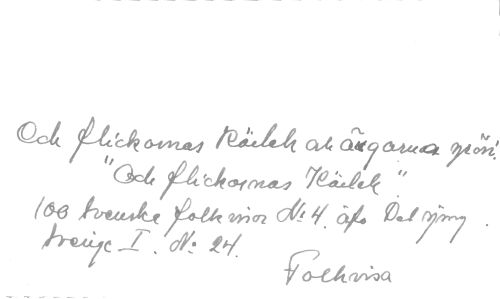 Och flickornas Kärlek och ängarnas grön!
"Och flickornas Kärlek"
100 Svenska folkvisor No 4. äfv. Det sjung
Sverige I. No 24.
Folkvisa